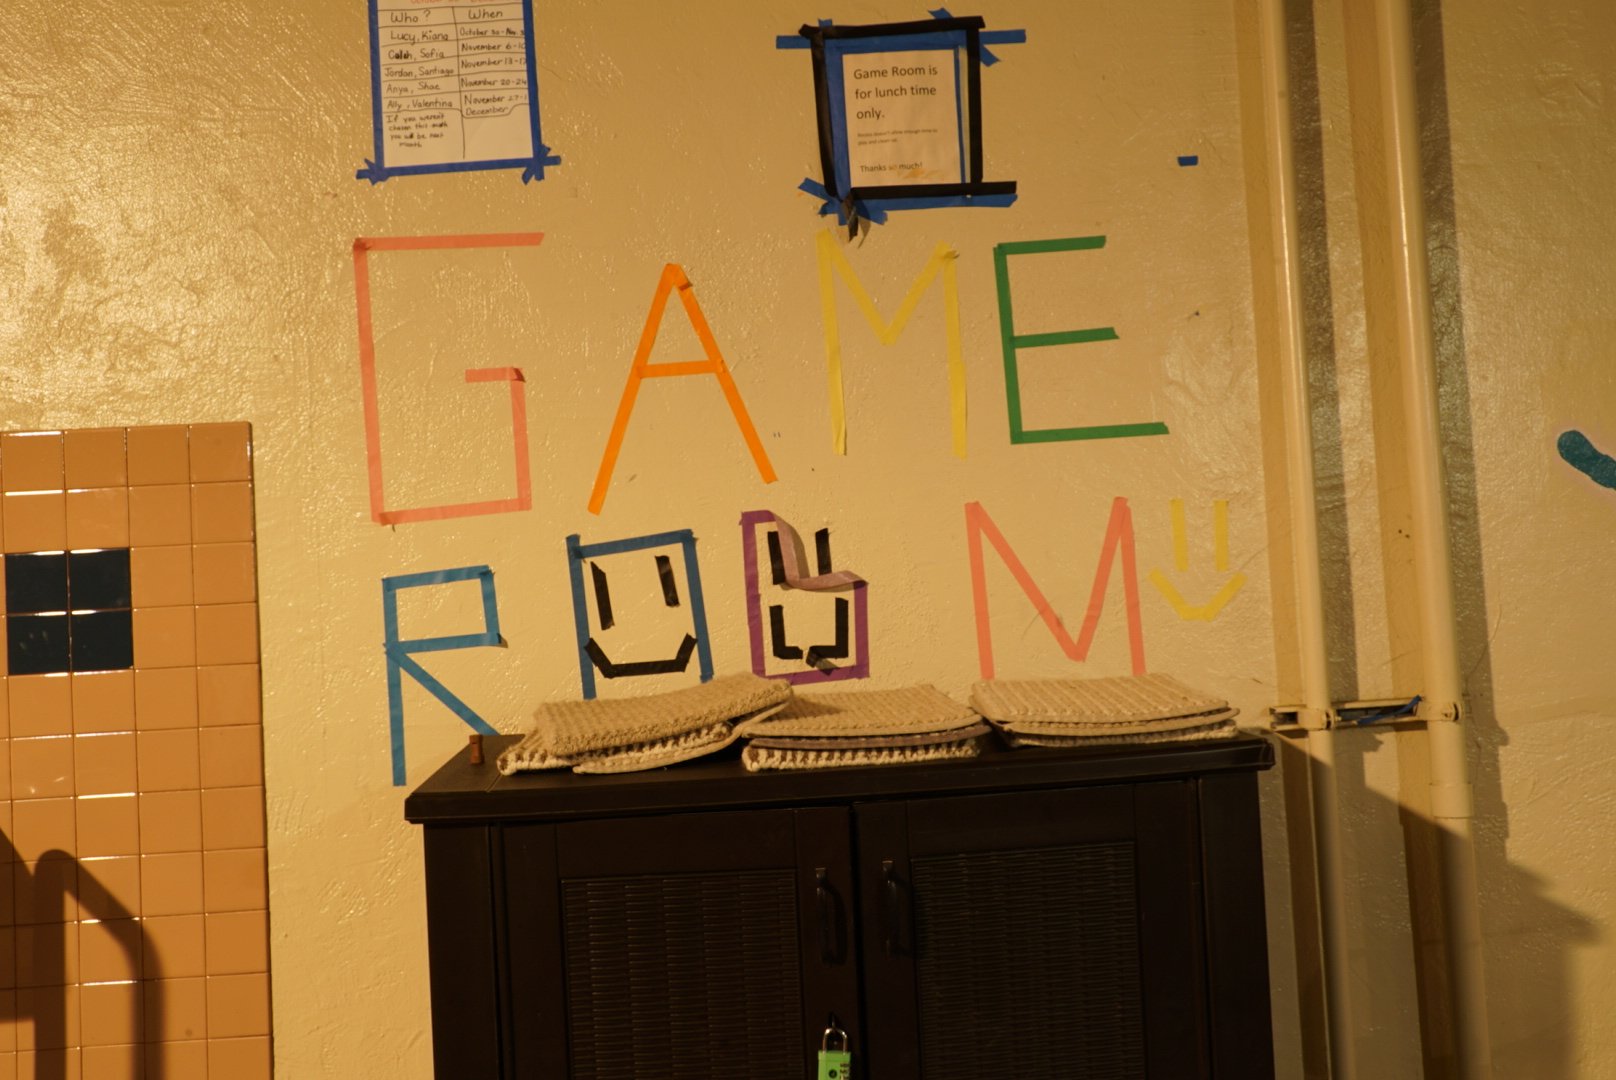 Who? When
Lucy, Kiana October 30-Nov. 3
Caleb, Sofia November 6-10
Jordan, Santiago November 13-17
Anya, Shae November 20-24
Ally, Valentina November 27-1
December
If you weren't
chosen this month
you will be next
month
Game Room is
for lunch time
only.
Thanks so much!
GAME
ROOM